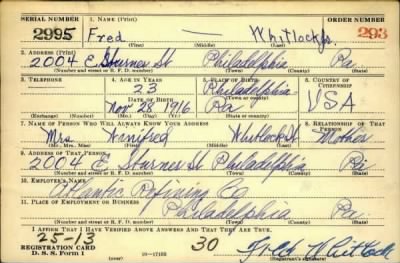 SERIAL NUMBER 1. NAME (Print) ORDER NUMBER
2995 Fred — Whitlock Jr. 293
(First) (Middle) (Last)
2. ADDRESS (Print)
2004 E. St. Philadelphia Pa.
(Number and street or R. F. D. number) (Town) (County) (State)
3. TELEPHONE 4. AGE IN YEARS 5. PLACE OF BIRTH 6. COUNTRY OF CITIZENSHIP
23 Philadelphia
(Town or county)
DATE OF BIRTH
Nov 28, 1916 Pa USA
(Exchange) (Number) (Mo.) (Day) (Yr.) (State or country)
7. NAME OF PERSON WHO WILL ALWAYS KNOW YOUR ADDRESS 8. RELATIONSHIP OF THAT PERSON
Mrs. Winifred Whitlock Mother
(Mr., Mrs., Miss) (First) (Middle) (Last)
9. ADDRESS OF THAT PERSON
2004 E. St. Philadelphia Pa.
(Number and street or R. F. D. number) (Town) (County) (State)
10. EMPLOYER'S NAME
Atlantic Refining Co
11. PLACE OF EMPLOYMENT OR BUSINESS
Philadelphia Pa.
(Number and street or R. F. D. number) (Town) (County) (State)
I AFFIRM THAT I HAVE VERIFIED ABOVE ANSWERS AND THAT THEY ARE TRUE.
25-13 30 Fred Whitlock
REGISTRATION CARD
D. S. S. Form 1 (over)